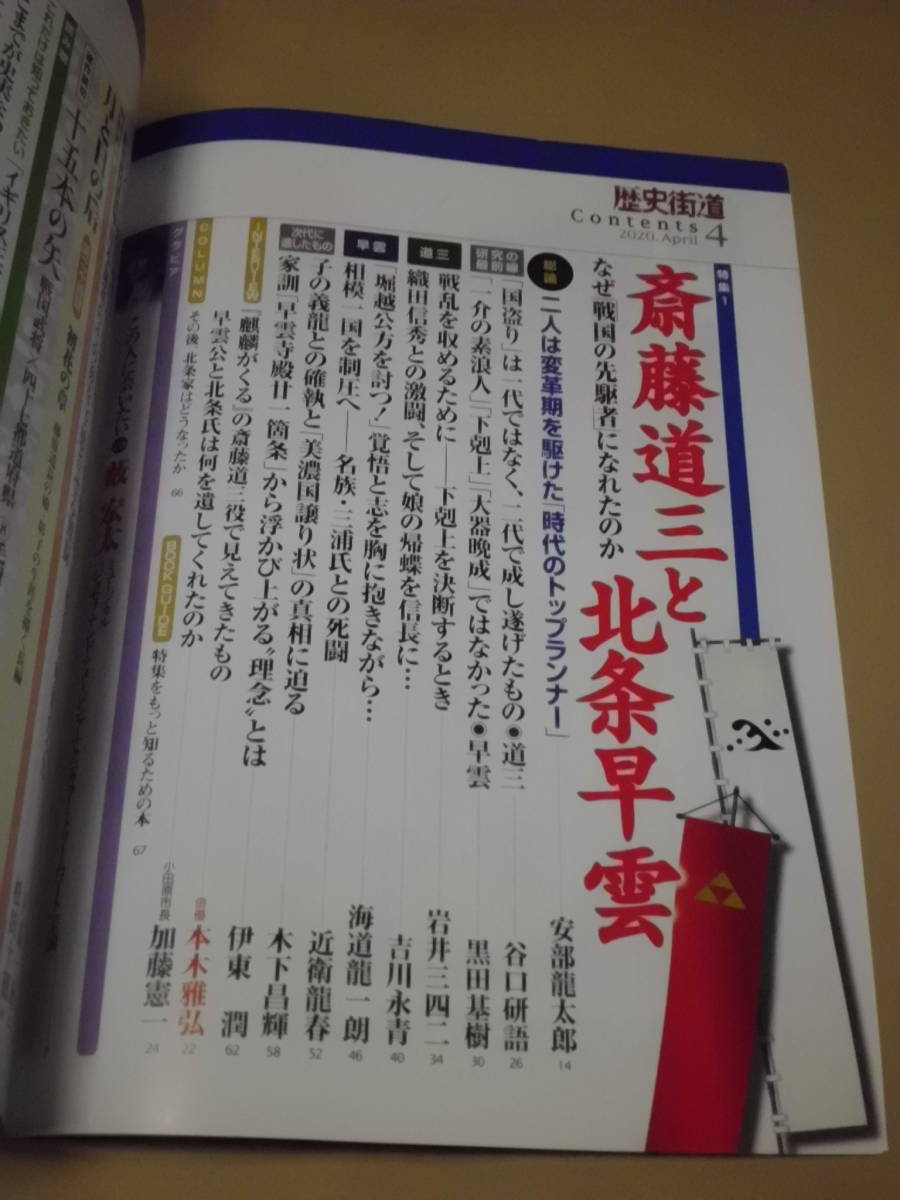 歴史街道
Contents 4
2020. April
特集1
斎藤道三と
北条早雲
なぜ「戦国の先駆者」になれたのか
総論 二人は変革期を駆けた「時代のトップランナー」 安部龍太郎 14
研究の最前線
「国盗り」は一代ではなく、二代で成し遂げたもの●道三 谷口研語 26
「一介の素浪人」「下剋上」「大器晩成」ではなかった●早雲 黒田基樹 30
道三 戦乱を収めるために――下剋上を決断するとき 岩井三四二 34
織田信秀との激闘、そして娘の帰蝶を信長に… 吉川永青 40
早雲 「堀越公方を討つ!」覚悟と志を胸に抱きながら… 海道龍一朗 46
相模一国を制圧へ――名族・三浦氏との死闘 近衛龍春 52
次代に遺したもの 子の義龍との確執と「美濃国譲り状」の真相に迫る 木下昌輝 58
家訓「早雲寺殿廿一箇条」から浮かび上がる“理念”とは 伊東潤 62
INTERVIEW 『麒麟がくる』の斎藤道三役で見えてきたもの 俳優 本木雅弘 22
早雲公と北条氏は何を遺してくれたのか 小田原市長 加藤憲一 24
COLUMN その後、北条家はどうなったか 66
BOOK GUIDE 特集をもっと知るための本 67
グラビア
この人に会いたい
宏太
十五本の矢
戦国武将
四十七都道府県
これだけは知っておきたい